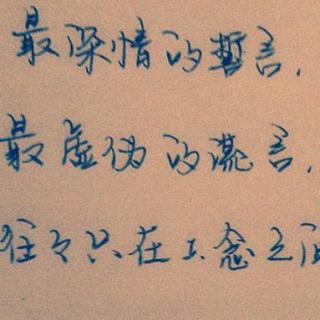 最深情的誓言,
最虚伪的谎言,
往々只在一念之间